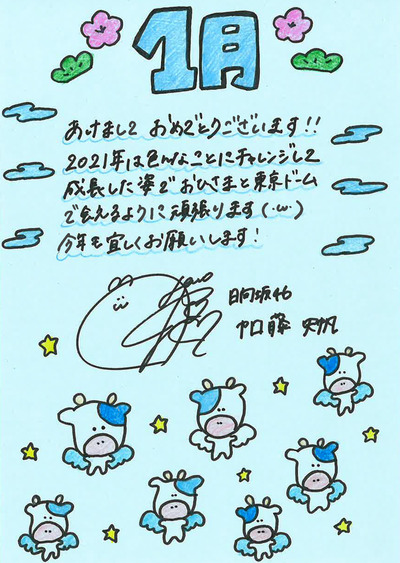 1月
あけまして おめでとうございます!!
2021年は色んなことにチャレンジして
成長した姿でおひさまと東京ドーム
で会えるように頑張ります(·ω·)
今年も宜しくお願いします!
日向坂46
加藤 史帆